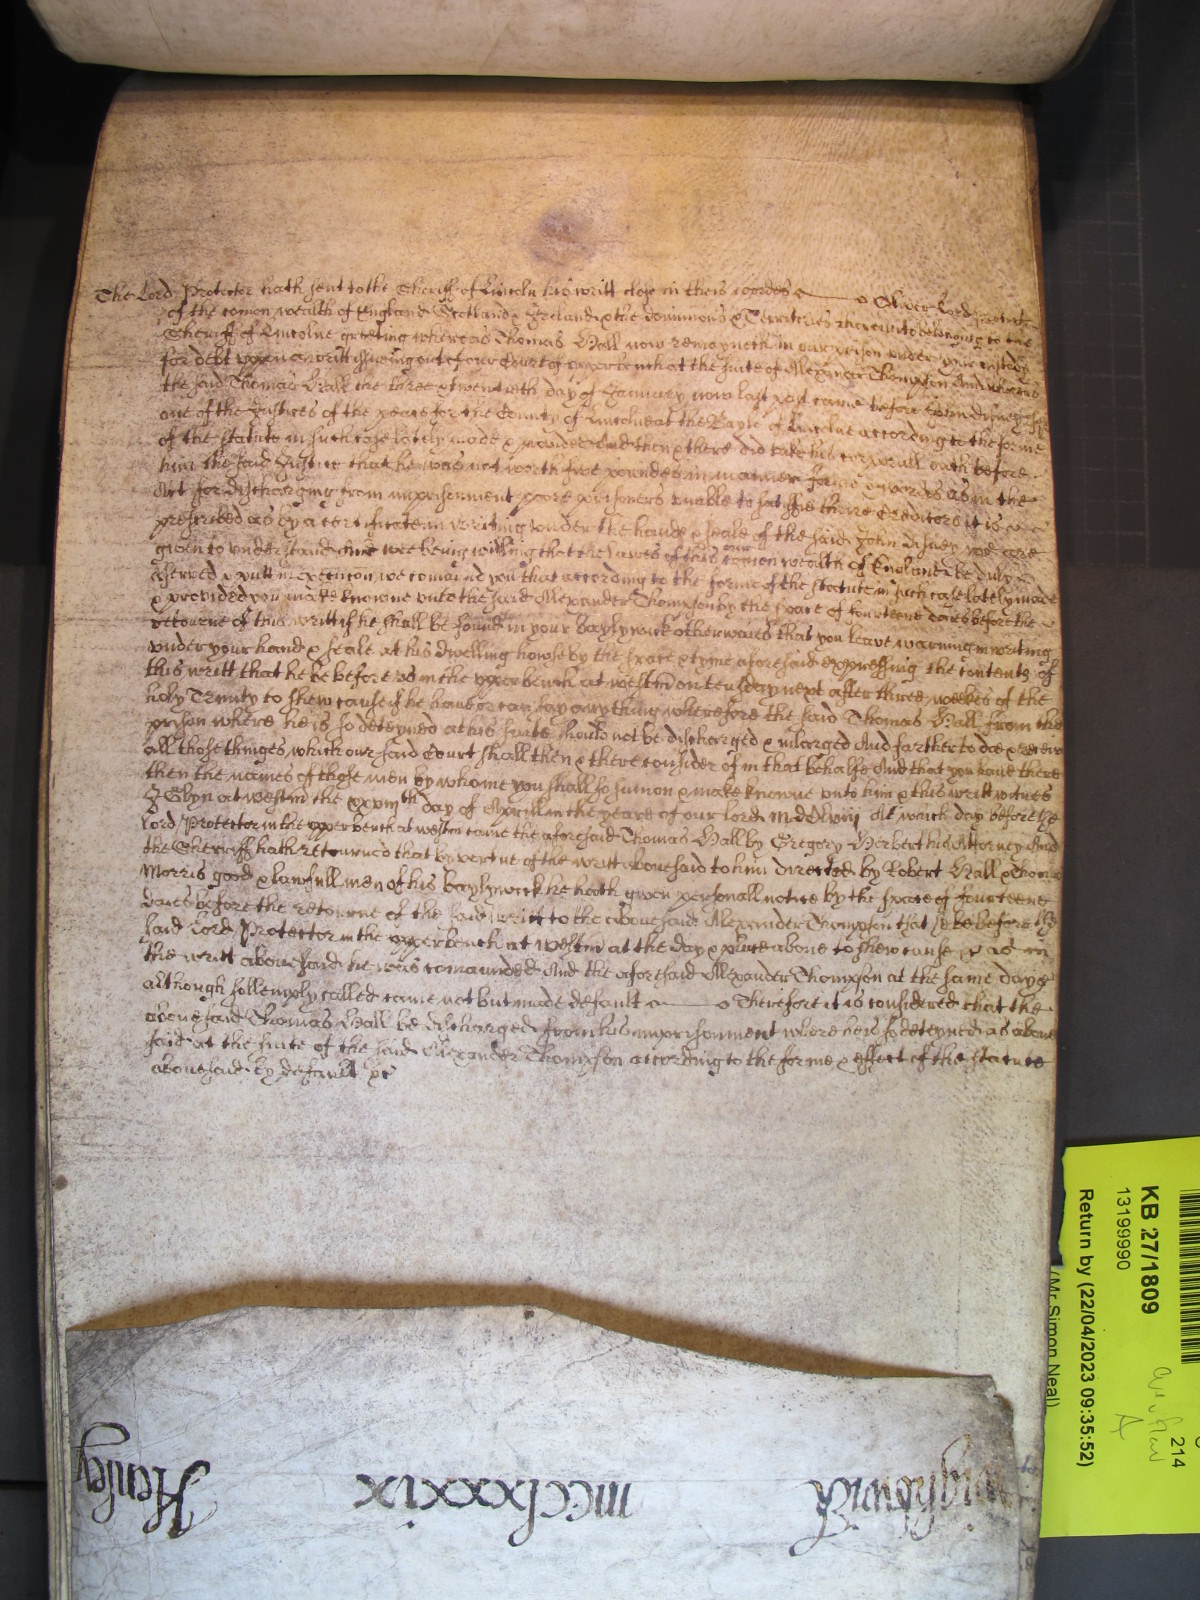 The Lord Protector hath sent to the Sheriff of Lincoln his writt close in theis wordes Oliver Lord Protector
of the comon wealth of England Scotland & Ireland & the dominions & Territories thereunto belonging to the
Sheriff of Lincolne greeting whereas Thomas Hall now remayneth in our prison under your custody
for debt uppon a writt issueing out of our Court of upper bench at the suite of Alexander Thompson And whereas
the said Thomas Hall the three & twentieth day of January now last past came before John Disney Esqr
one of the Justices of the peace for the County of Lincolne at the Bayle of Lincolne according to the forme
of the statute in such case lately made & provided And then & there did take his corporall oath before
him the said Justice that he was not worth five poundes in manner forme & wordes as in the
Act for discharging from imprisonment poore prisoners unable to satisfie theire Creditors it is
prescribed as by a certificate in writing under the hand & seale of the said John Disney wee are
given to understand And wee being willing that the lawes of this our comon wealth of England be duly
observed & putt in execucon we comaund you that according to the forme of the statute in such case lately made
& provided you make knowne unto the said Alexander Thompson by the space of fourteene daies before the
retourne of this writt if he shall be found in your baylywick otherwaies that you leave warning in writing
under your hand & seale at his dwelling howse by the space & tyme aforesaid expressing the contents of
this writt that he be before us in the upper bench at westm on tewsday next after three weekes of the
holy Trinity to shew cause if he have or can say any thing wherefore the said Thomas Hall from the
prison where he is so deteyned at his suite should not be discharged & inlarged And farther to doe & receive
all those thinges which our said Court shall then & there consider of in that behalfe And that you have there
then the names of those men by whome you shall so sumon & make knowne unto him & this writt witnes
J Glyn at westm the xxviijth day of Aprill in the yeare of our lord MDClviij At which day before the
Lord Protector in the upper bench at westm came the aforesaid Thomas Hall by Gregory Herbert his Attorney And
the Sherriff hath retourned that by vertue of the writt abovesaid to him directed by Robert Hall & Thomas
Morris good & lawfull men of his baylywick he hath given personall notice by the space of fourteene
daies before the retourne of the said writt to the abovesaid Alexander Thompson that he be before the
said Lord Protector in the upper bench at westm at the day & place above to shew cause & as in
the writt abovesaid he was comaunded And the aforesaid Alexander Thompson at the same day
although sollemply called came not but made default Therefore it is considered that the
abovesaid Thomas Hall be discharged from his imprisonment where he is so deteyned as above
said at the suite of the said Alexander Thompson according to the forme & effect of the statute
abovesaid by default &c
Henley mcclxxxix
KB 27/1809
13199990
Return by (22/04/2023 09:35:52)
(Mr Simon Neal)
214